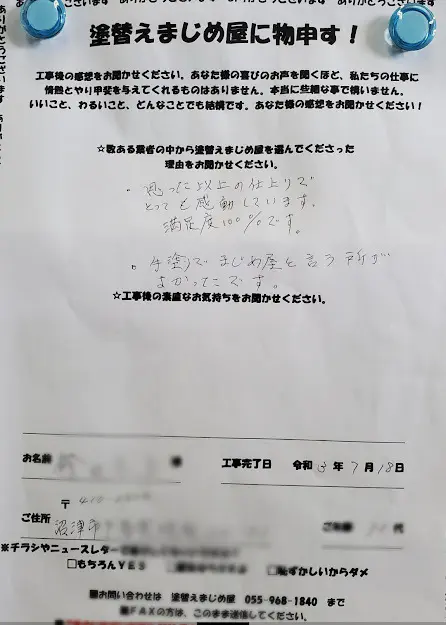 塗替えまじめ屋に物申す！
工事後の感想をお聞かせください。あなた様の喜びのお声を聞くほど、私たちの仕事に
情熱とやり甲斐を与えてくれるものはありません。本当に些細な事で構いません。
いいこと、わるいこと、どんなことでも結構です。あなた様の感想をお聞かせください！
☆数ある業者の中から塗替えまじめ屋を選んでくださった
理由をお聞かせください。
・思った以上の仕上りで
とっても感動しています。
満足度100%です。
。手塗りでまじめ屋と言う所が
よかったです。
☆工事後の素直なお気持ちをお聞かせください。
お名前 様 工事完了日 令和3年7月18日
〒410-
ご住所 沼津市 代
※チラシやニュースレター
□もちろんYES □恥ずかしいからダメ
■お問い合わせは 塗替えまじめ屋 055-968-1840 まで
■FAXの方は、このまま送信してください。
ありがとうございます